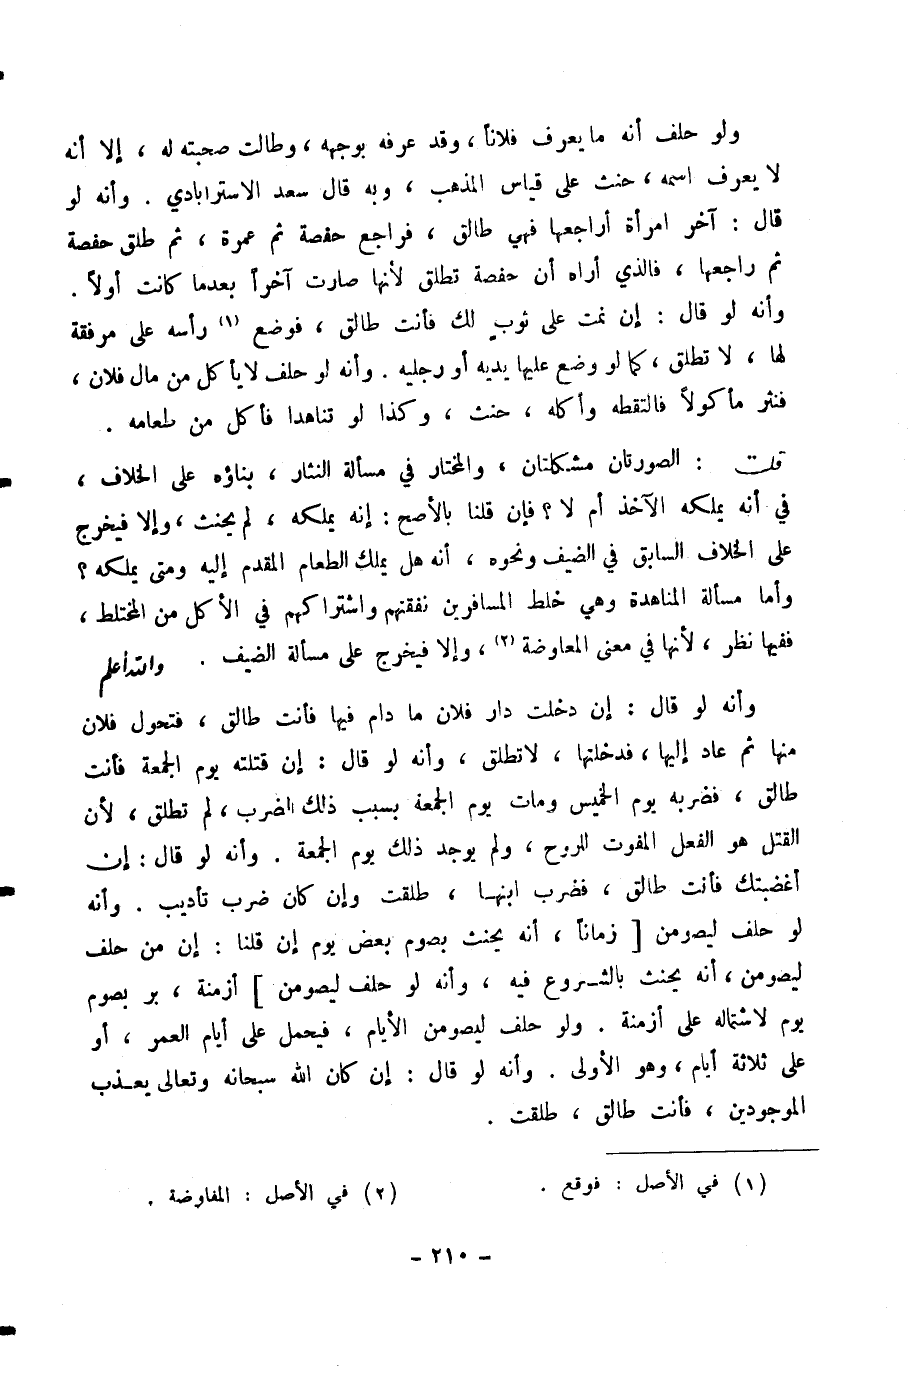 ولو حلف أنه ما يعرف فلاناً ، وقد عرفه بوجهه ، وطالت صحبته له ، إلا أنه
لا يعرف اسمه ، حنث على قياس المذهب ، وبه قال سعد الاسترابادي . وأنه لو
قال : آخر امرأة أراجعها فهي طالق ، فراجع حفصة ثم عمرة ، ثم طلق حفصة
ثم راجعها ، فالذي أراه أن حفصة تطلق لأنها صارت آخراً بعدما كانت أولاً .
وأنه لو قال : إن نمت على ثوبٍ لك فأنت طالق ، فوضع (١) رأسه على مرفقة
لها ، لا تطلق ، كما لو وضع عليها يديه أو رجليه . وأنه لو حلف لا يأكل من مال فلان ،
فنثر مأكولاً فالتقطه وأكله ، حنث ، وكذا لو تناهدا فأكل من طعامه .
قلت : الصورتان مشكلتان ، والمختار في مسألة النثار ، بناؤه على الخلاف ،
في أنه يملكه الآخذ أم لا ؟ فإن قلنا بالأصح : إنه يملكه ، لم يحنث ، وإلا فيخرج
على الخلاف السابق في الضيف ونحوه ، أنه هل يملك الطعام المقدم إليه ومتى يملكه ؟
وأما مسألة المناهدة وهي خلط المسافرين نفقتهم واشتراكهم في الأكل من المختلط ،
ففيها نظر ، لأنها في معنى المعاوضة (٢) ، وإلا فيخرج على مسألة الضيف . والله أعلم
وأنه لو قال : إن دخلت دار فلان ما دام فيها فأنت طالق ، فتحول فلان
منها ثم عاد إليها ، فدخلتها ، لا تطلق ، وأنه لو قال : إن قتلته يوم الجمعة فأنت
طالق ، فضربه يوم الخميس ومات يوم الجمعة بسبب ذلك الضرب ، لم تطلق ، لأن
القتل هو الفعل المفوت للروح ، ولم يوجد ذلك يوم الجمعة . وأنه لو قال : إن
أغضبتك فأنت طالق ، فضرب ابنها ، طلقت وإن كان ضرب تأديب . وأنه
لو حلف ليصومن [ زماناً ، أنه يحنث بصوم بعض يوم إن قلنا : إن من حلف
ليصومن ، أنه يحنث بالشروع فيه ، وأنه لو حلف ليصومن ] أزمنة ، بر بصوم
يوم لاشتماله على أزمنة . ولو حلف ليصومن الأيام ، فيحمل على أيام العمر ، أو
على ثلاثة أيام ، وهو الأولى . وأنه لو قال : إن كان الله سبحانه وتعالى يعذب
الموجودين ، فأنت طالق ، طلقت .
(١) في الأصل : فوقع . (٢) في الأصل : المفاوضة .
- ٢١٠ -